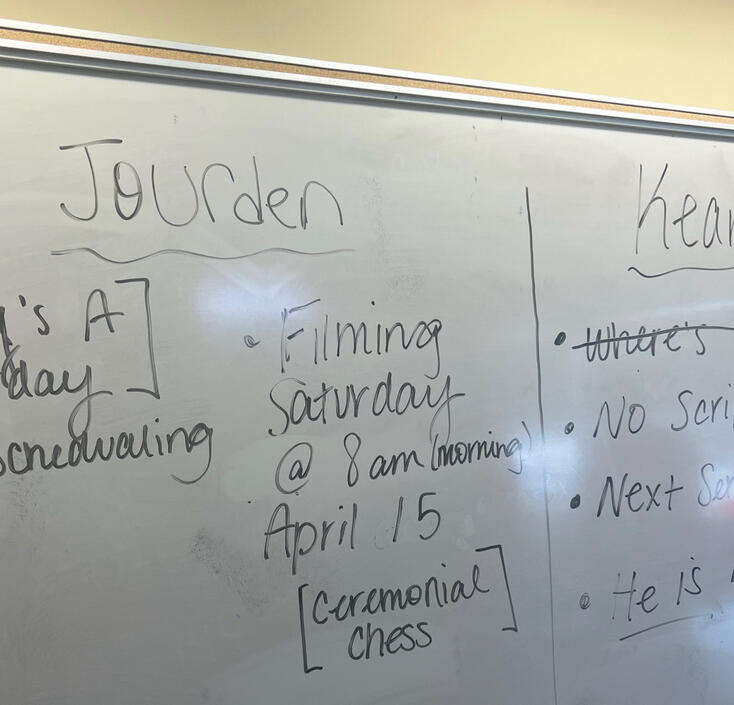 Jourden
's A
day
scheduling
• Filming
Saturday
@ 8am (morning)
April 15
[Ceremonial
Chess]
Kear
• Where's
• No Scri
• Next Ser
• He is